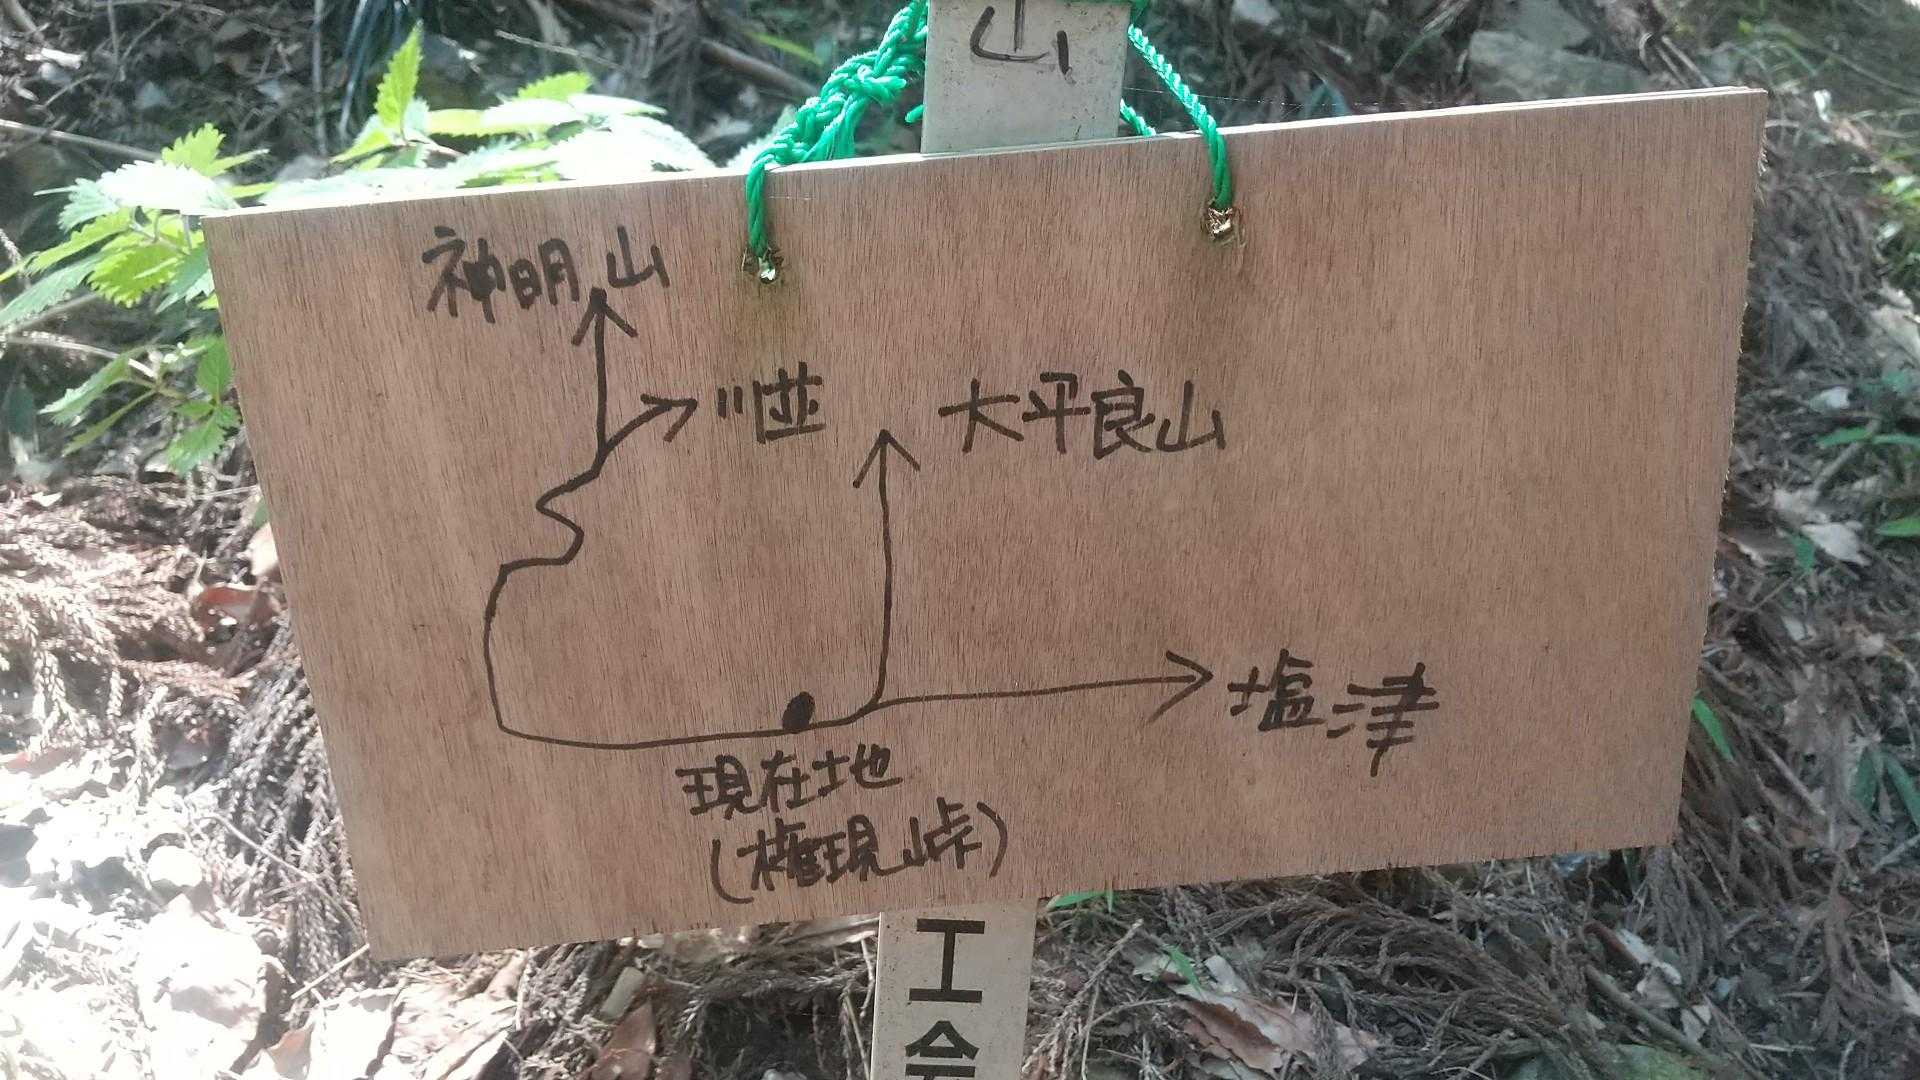 山
神明山
川並
大平良山
塩津
現在地
(権現峠)
工
会